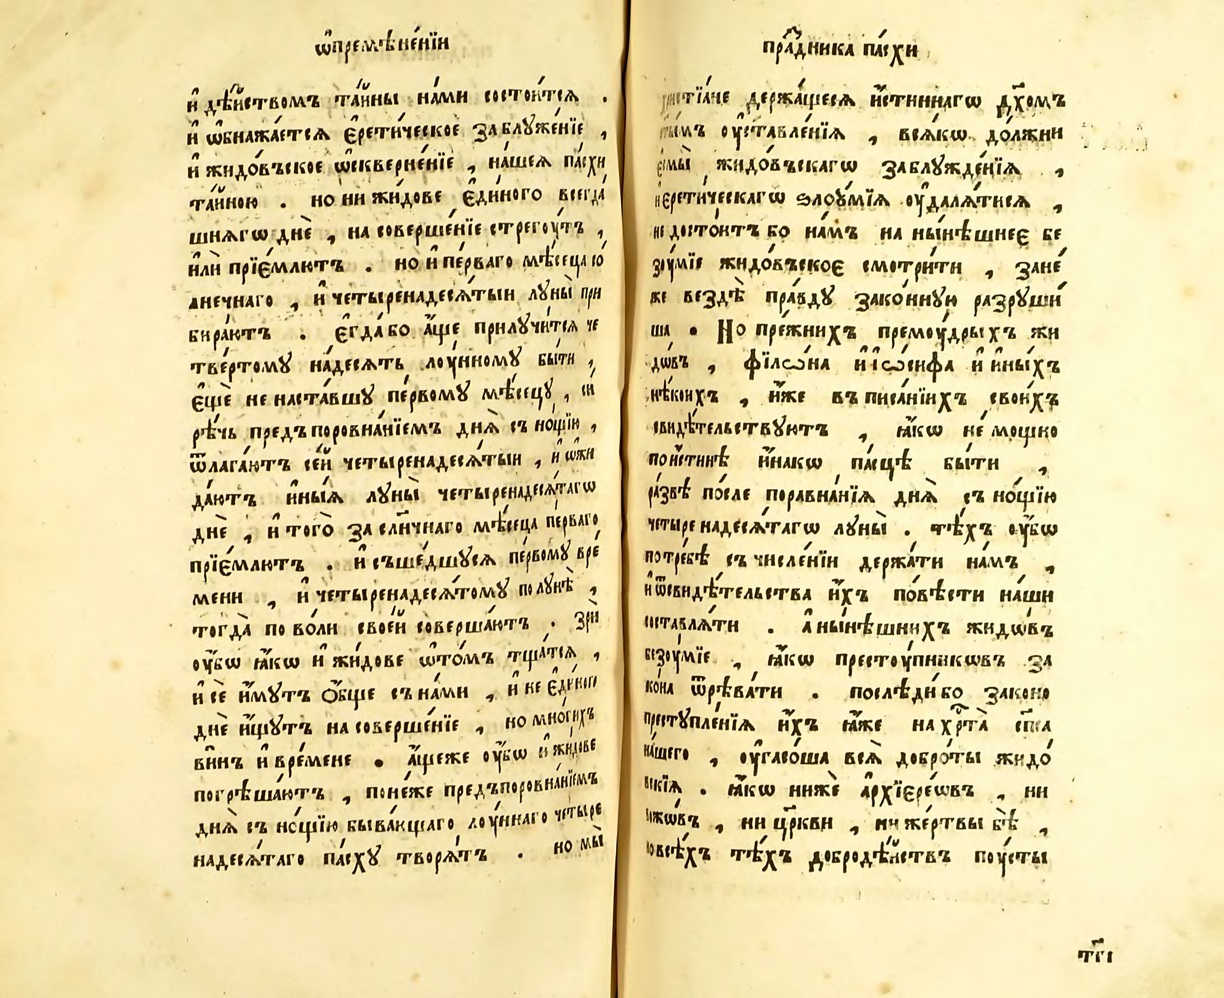 ѡ҆премѣне́нїи
и҆ дѣ́йствомъ та́йны на́ми состои́тсѧ .
и҆ ѡ҆бнажа́етсѧ є҆рети́ческое заблуже́нїе ,
и҆ жидо́въское ѡ҆скверне́нїе , на́шеѧ па́схи
та́йною . но ни жи́дове є҆ди́ного всегда̀
шнѧгѡ днѐ , на соверше́нїе стрегоу́тъ ,
и҆лѝ прїе́млютъ . но и҆ пе́рваго мѣ́сеца со́
лнечнаго , и҆ четыренадесѧ́тыи луны̀ при
бира́ютъ . є҆гда́ бо а҆́ще прилучи́тсѧ че
тве́ртому на́десѧть лоу́нному бы́ти ,
є҆щѐ не наста́вшу пе́рвому мѣ́сецу , си
рѣ́чь предъ поровна́нїемъ днѧ̀ съ но́щїю ,
ѿлага́ютъ се́й четыренадесѧ́тыи , и҆ ѡ҆жи
да́ютъ и҆ны́ѧ луны̀ четыренадесѧ́тагѡ
днѐ , и҆ того̀ за сл҃нчнаго мѣ́сеца пе́рваго
прїе́млютъ . и҆ съше́дшусѧ пе́рвому вре́
мени , и҆ четыренадесѧ́тому по лунѣ̀ ,
тогда̀ по во́ли свое́й соверша́ютъ . зрѝ
оу҆́бѡ ꙗ҆́кѡ и҆ жи́дове ѡ҆то́мъ тща́тсѧ ,
и҆ сѐ и҆́мутъ ѻ҆́бще съ на́ми , и҆ не є҆ди́ного
днѐ и҆́щутъ на соверше́нїе , но мно́гихъ
ви́нъ и҆ вре́мене . а҆́щеже оу҆́бѡ и҆ жи́дове
погрѣша́ютъ , поне́же предъпоровна́нїемъ
днѧ̀ съ но́щїю быва́ющаго лоу́ннаго четы́ре
надесѧ́таго па́сху творѧ́тъ . но мы̀
пра́здника па́схи
христїа́не держа́щесѧ и҆́стиннагѡ дх҃омъ
ст҃ы́мъ оу҆ставле́нїѧ , всѧ́кѡ до́лжни
є҆смы̀ жидо́въскагѡ заблужде́нїѧ ,
и҆ є҆рети́ческагѡ ѕлоу́мїѧ оу҆далѧ́тисѧ ,
не досто́итъ бо на́мъ на ны́нѣшнее бе
зоу́мїе жидо́въское смотри́ти , зане́
же вездѣ̀ пра́вду зако́нную разруши́
ша . Но пре́жнихъ премоу́дрыхъ жи
дѡ́въ , фїлѡ́на и҆ і҆ѡ́сифа и҆ и҆ны́хъ
нѣ́коихъ , и҆́же въ писа́нїихъ свои́хъ
свидѣ́тельствуютъ , ꙗ҆́кѡ не́ мощно
по и҆́стинѣ и҆́накѡ па́сцѣ бы́ти ,
ра́звѣ по́сле поравна́нїѧ днѧ̀ съ но́щїю
четыре надесѧ́тагѡ луны̀ . тѣ́хъ оу҆́бѡ
потре́бѣ съ числе́нїи держа́ти на́мъ ,
и҆ ѿсвидѣ́тельства и҆́хъ по́вѣсти на́ши
составлѧ́ти . А ны́нѣшнихъ жидѡ́въ
безоу́мїе , ꙗ҆́кѡ престоу́пникѡвъ за
ко́на ѿрѣва́ти . послѣди́ бо законо
преступле́нїѧ и҆́хъ ꙗ҆́же на хр҃та̀ сп҃са
на́шего , оу҆гасо́ша всѧ̀ добро́ты жидо́
вскїѧ . ꙗ҆́кѡ ниже́ а҆рхїере́ѡвъ , ни
мꙋжѡ́въ , ни цр҃кви , ни же́ртвы бѣ̀ ,
но всѣ́хъ тѣ́хъ добродѣ́йствъ поу́сты
тг҃і